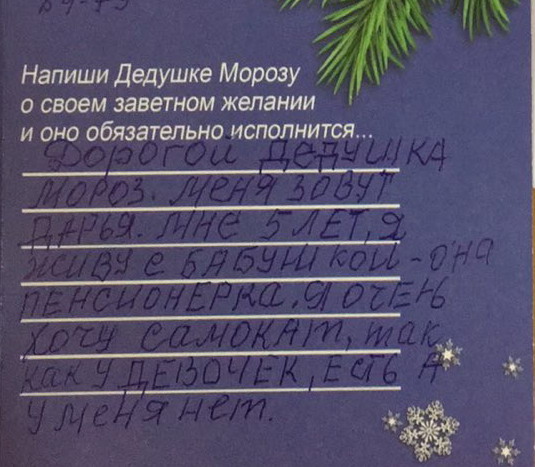 Напиши Дедушке Морозу
о своем заветном желании
и оно обязательно исполнится...
Дорогой ДЕДУШКА
МОРОЗ. МЕНЯ ЗОВУТ
ДАРЬЯ. МНЕ 5 ЛЕТ, Я
ЖИВУ С БАБУШКОЙ - ОНА
ПЕНСИОНЕРКа. Я ОЧЕНЬ
ХОЧУ САМОКАТ, так
как У ДЕВОЧЕК, ЕСТЬ А
У меня нет.